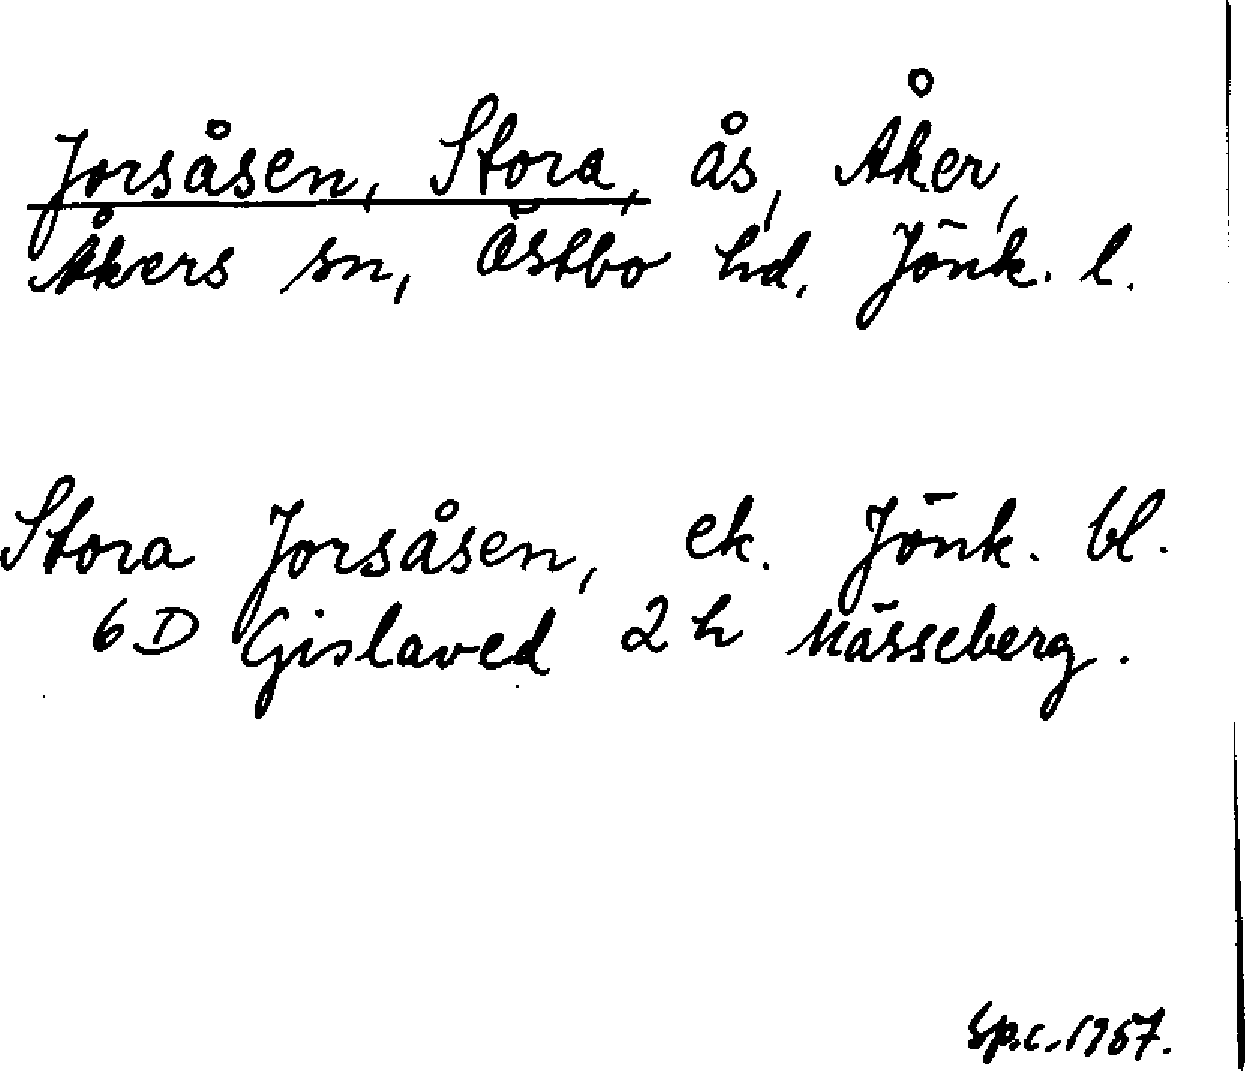 Jorsåsen, Stora, ås, Åker,
Åkers sn, Östbo hd, Jönk. l.
Stora Jorsåsen, ek. Jönk. bl.
6D Gislaved 2h Nässeberg.
Sp.c. 1957.